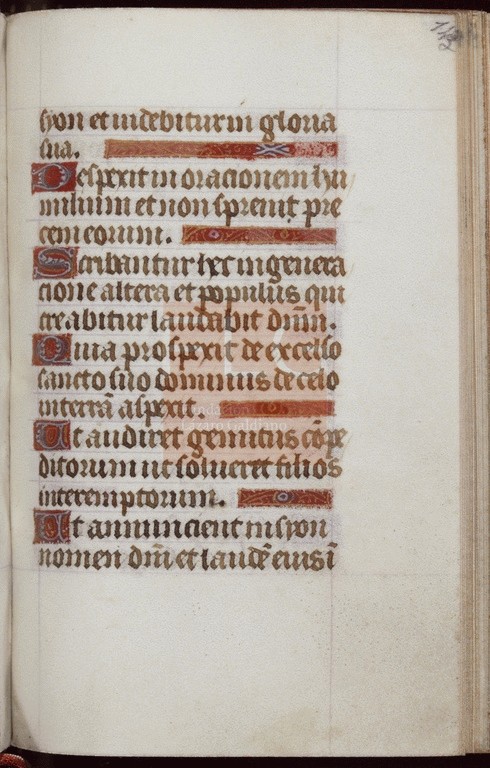 142
syon et uidebitur in gloria
sua.
Respexit in oracionem hu
milium et non spreuit pre
cem eorum.
Scribantur hec in genera
cione altera et populus qui
creabitur laudabit dñm.
Quia prospexit de excelso
sancto suo dominus de celo
in terrã aspexit.
Ut audiret gemitus cõpe
ditorum ut solueret filios
interemptorum.
Ut annuncient in syon
nomen dñi et laudẽ eius ĩ
Fundación
Lázaro Galdiano